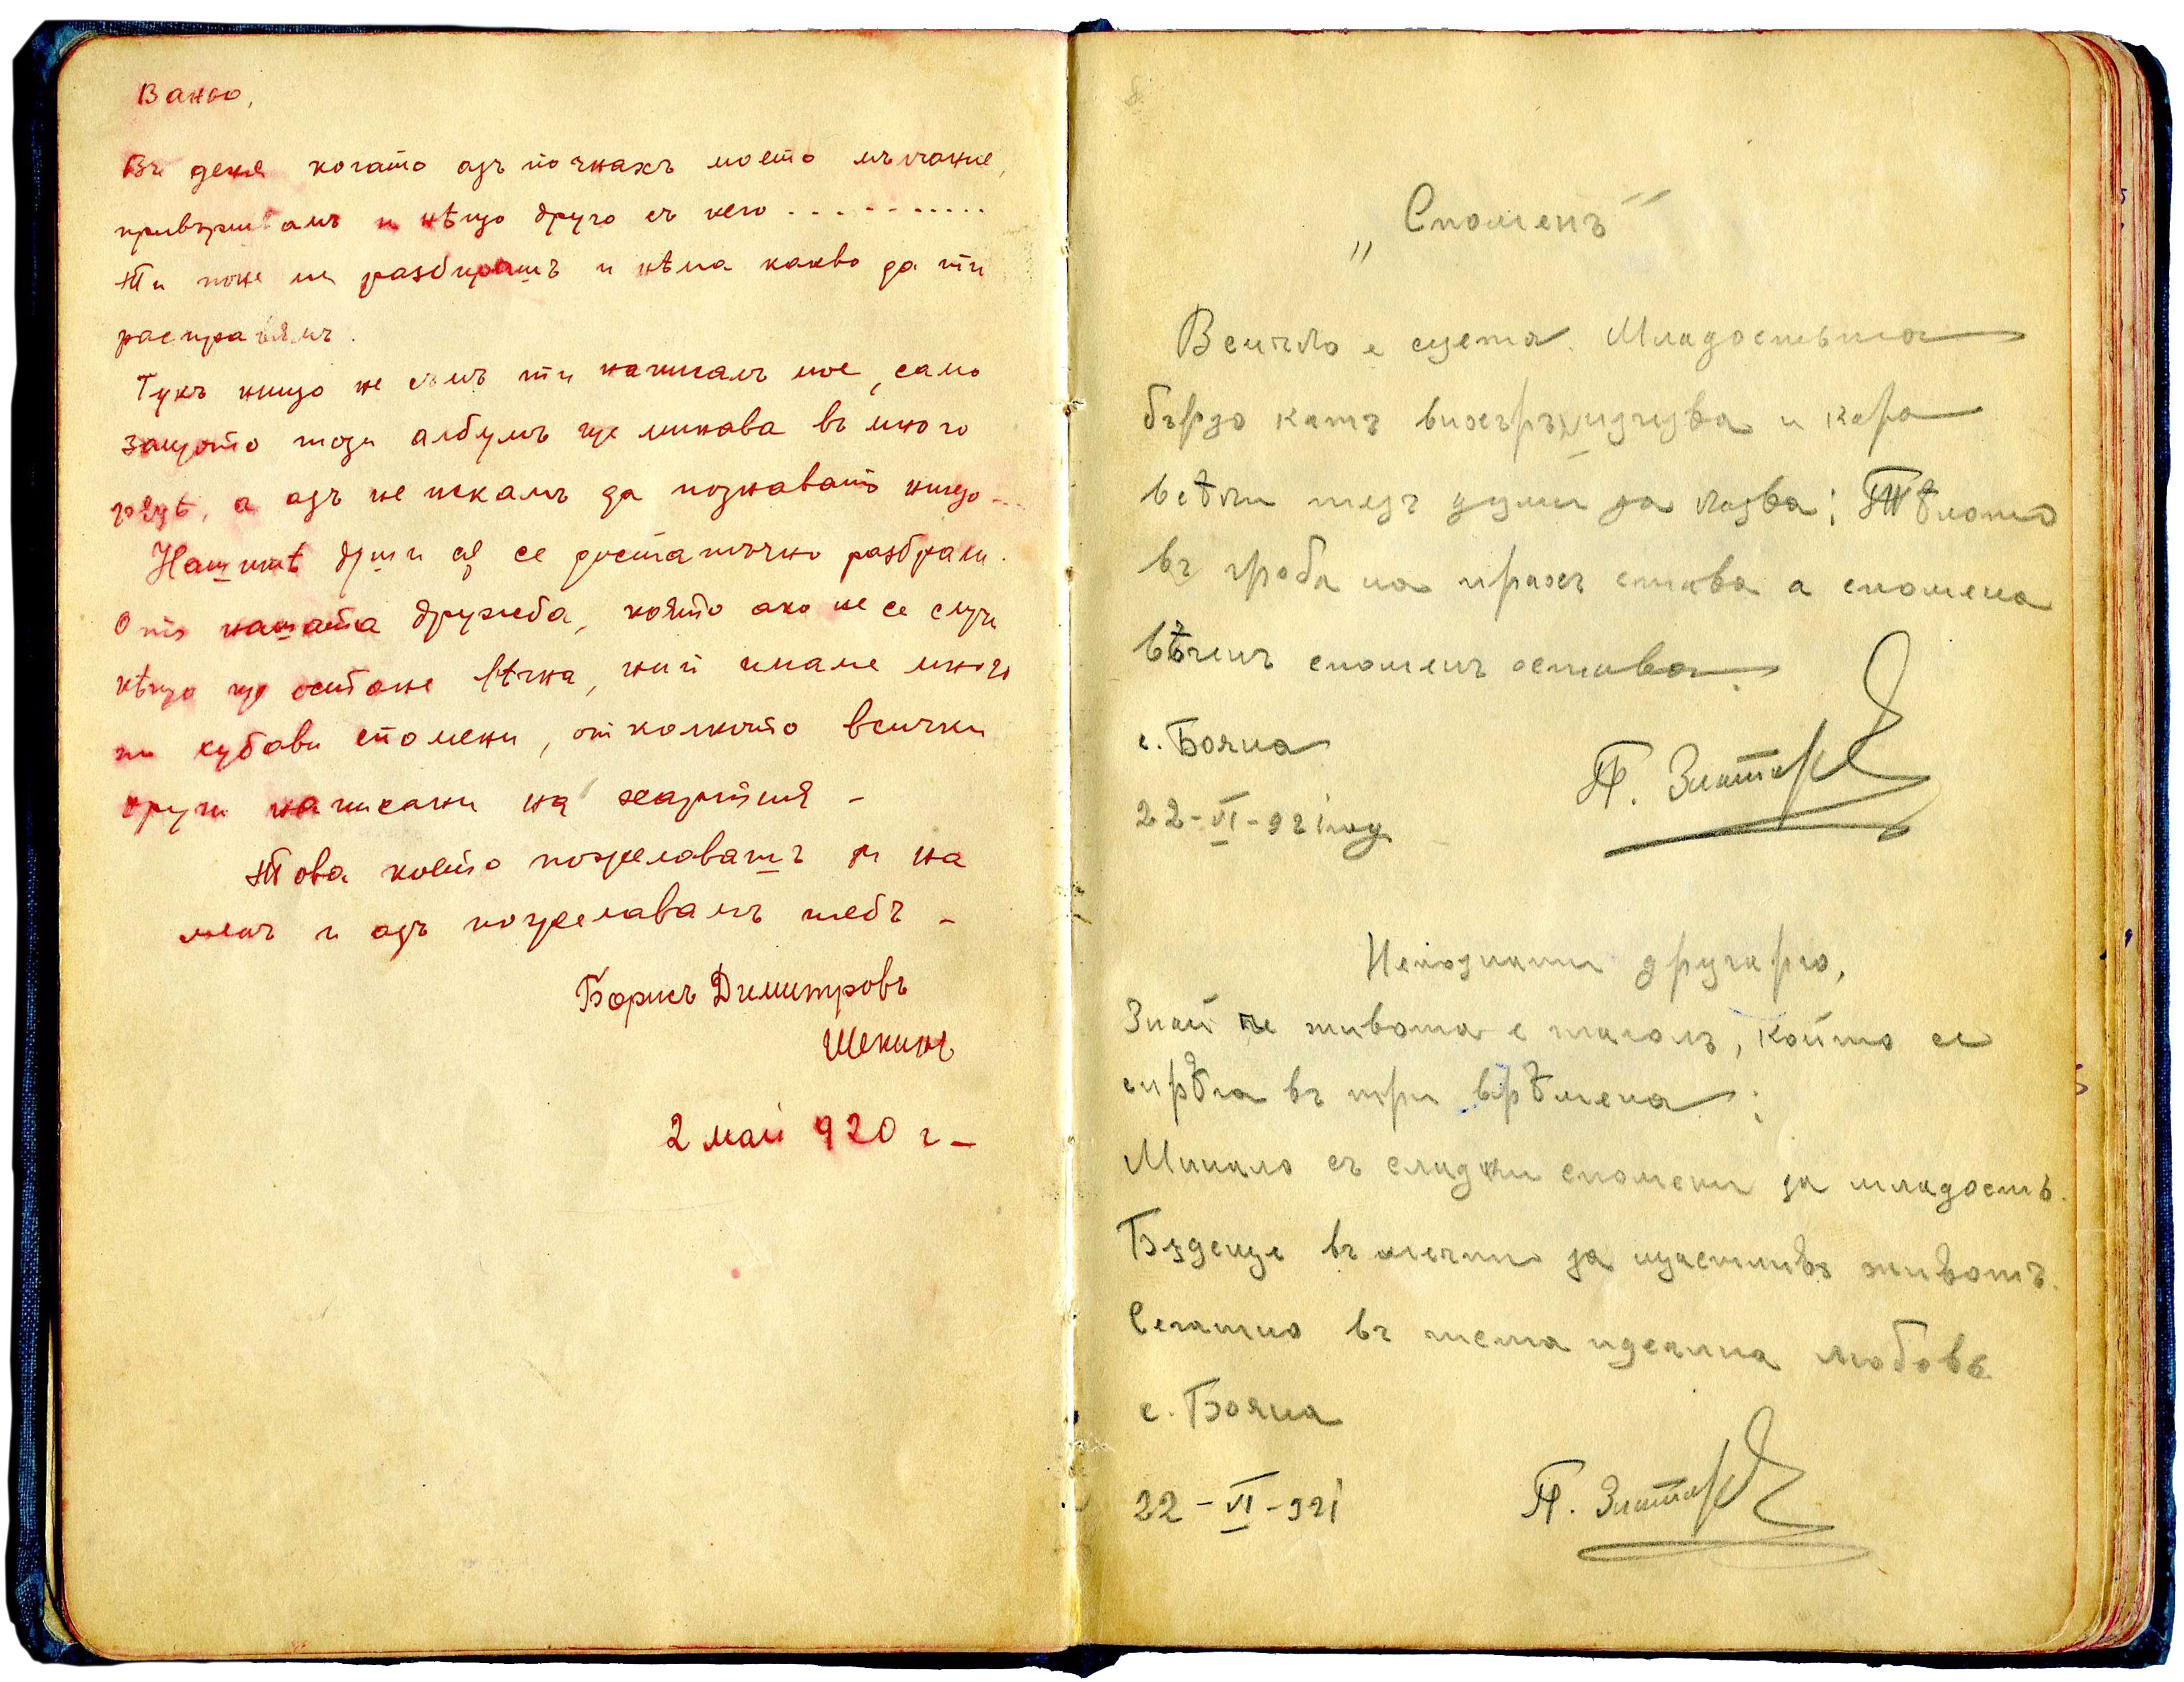 Ваньо,
Въ деня когато азъ почнахъ моето мълчание,
привършвамъ и нѣщо друго съ него ...........
Ти поне ме разбирашъ и нѣма какво да ти
расправямъ.
Тукъ нищо не съмъ ти написалъ мое, само
защото този албумъ ще минава въ много
рѫцѣ, а азъ не искамъ да познаватъ нищо...
Нашитѣ души сѫ се достатъчно разбрали.
Отъ нашата дружба, която ако не се случи
нѣщо ще остане вѣчна, ний имаме много
по хубави спомени, отколкото всички
други написани на хартия –
Това което пожелавашъ ти на
менъ и азъ пожелавамъ тебъ –
Борисъ Димитровъ
2 май 920 г –
„Споменъ"
Всичко е суета. Младостьта
бързо катъ вихъръ изчезва и кара
всѣки тезъ думи да казва; Тѣлото
въ гроба на прахъ става а спомена
вѣченъ споменъ остава.
с. Бояна
П. Златар
22-VI-921 год
Непознати другарю,
Знай че живота е глаголъ, който се
спрѣга въ три врѣмена:
Минало съ сладки спомени за младость.
Бѫдеще въ мечти за щастливъ животъ.
Сегашно въ идеална любовь
с. Бояна
22-VI-921
П. Златар